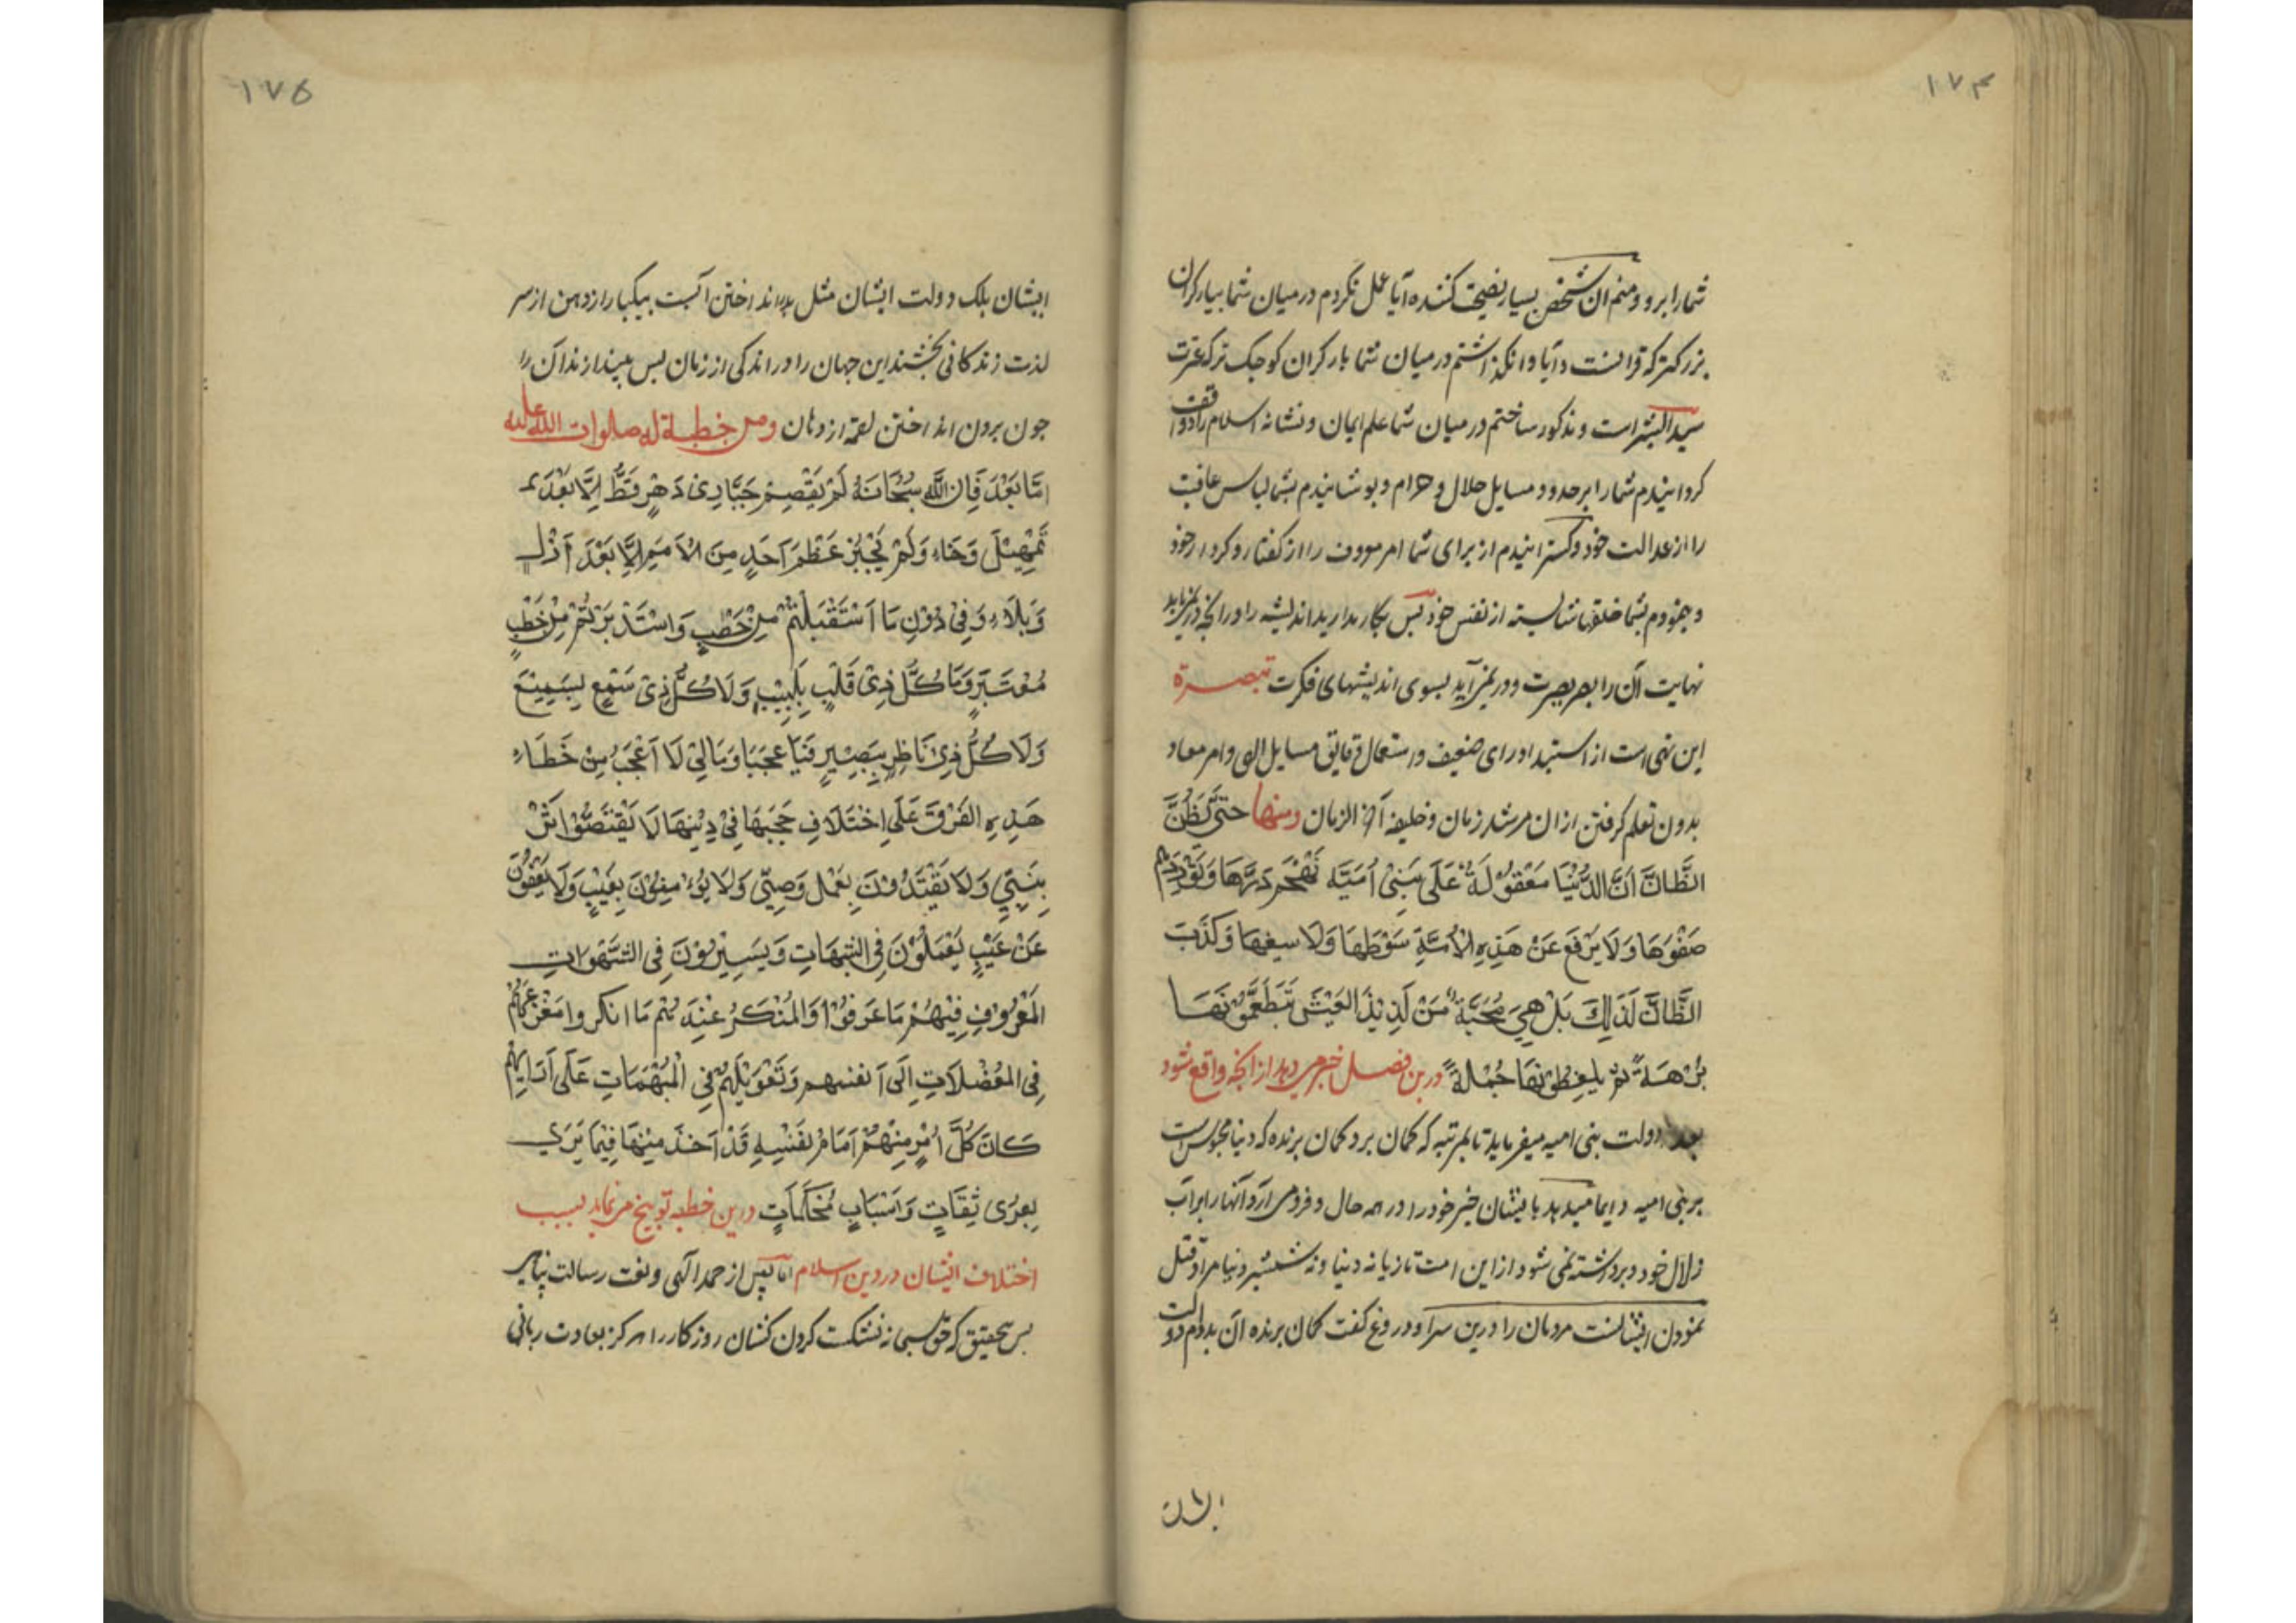 ۱۷۴
شما را برو و منم آن شخص بسیار نصیحت کننده آیا عمل نکردم در میان شما ببار گران
بزرکتر که قرآنست و آیا وانکذاشتم در میان شما بار کران کوجک تر که عترت
سید البشر است و مذکور ساختم در میان شما علم ایمان و نشانه اسلام را و واقف
کردانیدم شما را بر حدود مسایل حلال و حرام و بوشانیدم بشما لباس عافیت
را از عدالت خود و کسترانیدم از برای شما امر معروف را از کفتار و کردار خود
و نمودم بشما خلقها شایسته از نفس خود بس بکار مدارید اندیشه را در آنچه درنیابد
نهایت آن را بصر بصیرت و در نمی‌آید بسوی اندیشهای فکرت تبصرة
این نهی است از استبداد رای ضعیف و استعمال دقایق مسایل الهی و امر معاد
بدون تعلم کرفتن از ان مرشد زمان و خلیفه آخر الزمان ومنها حَتّٰى يَظُنَّ
الظَّانُّ اَنَّ الدُّنْيَا مَعْقُولَةٌ عَلَى بَنِىْ اُمَيَّه تَمْنَحُهُم دَرَّهَا وَتُوْرِدُهُم
صَفْوَهَا وَلَا يَرْفَعُ عَنْ هَذِهِ الْاُمَّةِ سَوْطُهَا وَلَا سيفها وَكَذَبَ
الظَّانُّ لَذٰلِكَ بَلْ هِيَ مُجَّةٌ مَنْ لَذِيْذِ العَيْشِ يَتَطَعَّمُوْنَهَا
بُرْهَةً ثمّ يلفِظُوْنَهَا جُمْلَةً درین فصل خبر می‌دهد از آنچه واقع شود
بعد دولت بنی امیه میفرماید تا بمرتبه که کمان برد کمان برنده که دنیا محبوس است
بر بنی امیه و ایما میدهد بایشان خیر خود را در همه حال و فرو می آرد آنها را بر آب
زلال خود و برداشته نمی شود از این امت تازیانه دنیا و نه شمشیر دنیا مراد قتل
نمودن ایشانست مردمان را درین سرا و دروغ کفت کمان برنده آن بدوام دولت
ایشان
۱۷۵
ایشان بلک دولت ایشان مثل بدر انداختن آبست بیکبار از دهن از سر
لذت زندکانی بخشند این جهان را در اندکی از زمان بس بیندازند آن را
جون برون انداختن لقمه از دهان ومن خطبة له صلوات الله علیه
امَّا بَعْدَ فَاِنَ اللّٰهَ سُبْحَانَهُ لَمْ يَقْصِمْ جَبَّارِى دَهْرٍ قَطُّ اِلَّا بَعْدَ
تَمْهِيْلَ وَرَخَاءٍ وَلَمْ يَجْبُرْ عَظْمَ اَحَدٍ مِنَ الْاُمَمِ اِلَّا بَعْدَ اَزْلٍ
وَبَلَاءٍ وَفِىْ دُوْنِ مَا اَسْتَقْبَلْتُمْ مِنْ خَطْبٍ وَاسْتَدْبَرْتُمْ مِنْ خَطْبٍ
مُعْتَبَرٌ وَمَا كُلُّ ذِىْ قَلْبٍ بِلَبِيْبٍ وَلَا كُلُّ ذِىْ سَمْعٍ بِسَمِيْعٍ
وَلَا كُلُّ ذِىْ نَاظِرٍ بِبَصِيْرٍ فَيَا عَجَبًا وَمَالِىْ لَا اَعْجَبُ مِنْ خَطَاءِ
هَذِهِ الفِرَقِ عَلَى اِخْتَلَافِ حُجَجِهَا فِىْ دِيْنِهَا لَا يَقْتَصُّوْا اَثَرْ
بِنَبِيٍّ وَلَا يَقْتَدُوْنَ بِعَمَلِ وَصِيٍّ وَلَا يُؤْمِنُوْنَ بِغَيْبٍ وَلَا يَعِفُّوْنَ
عَنْ عَيْبٍ يَعْمَلُوْنَ فِى الشُّبُهَاتِ وَيَسِيْرُوْنَ فِى الشَّهَوَاتِ
المَعْرُوْفِ فِيْهُمْ مَا عَرَفُوْا وَالْمُنْكَرُ عِنْدَهُمْ مَا انكروا مَفْزَعُهُمْ
فِى المُعْضَلَاتِ اِلَى اَنفسهم وَتَعْوِيْلُهُمْ فِى الْمُبْهَمَاتِ عَلَى اٰرَائِهِمْ
كَانَ كُلَّ اَمْرٍ مِنْهُمْ اِمَامُ نَفْسِهِ قَدْ اَخَذَ مِنْهَا فِيْمَا يَرَى
بِعُرَى ثِقَاتٍ وَاَسْبَابٍ مُحَكَمَاتٍ درین خطبه توبیخ می‌نماید بسبب
اختلاف ایشان در دین اسلام اما پس از حمد الهی و نعت رسالت پناهی
بس بتحقیق که حق سبحانه نشکست کردن کشان روزکار را هرکز بعادت ربانی